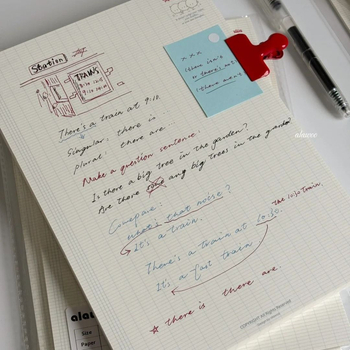 Station
TRAINS
There's a train at 9:10.
Singular, there is
plural, there are.
Make a question sentence.
Is there a big tree in the garden?
Are there any big trees in the garden
Compare:
what's that noise?
It's a train.
the 10:30 train
There's a train at 10:30.
It's a fast train
there is there are.
x x x
there isn't
alaw
Size
Paper
COPYRIGHT All Rights Reserved